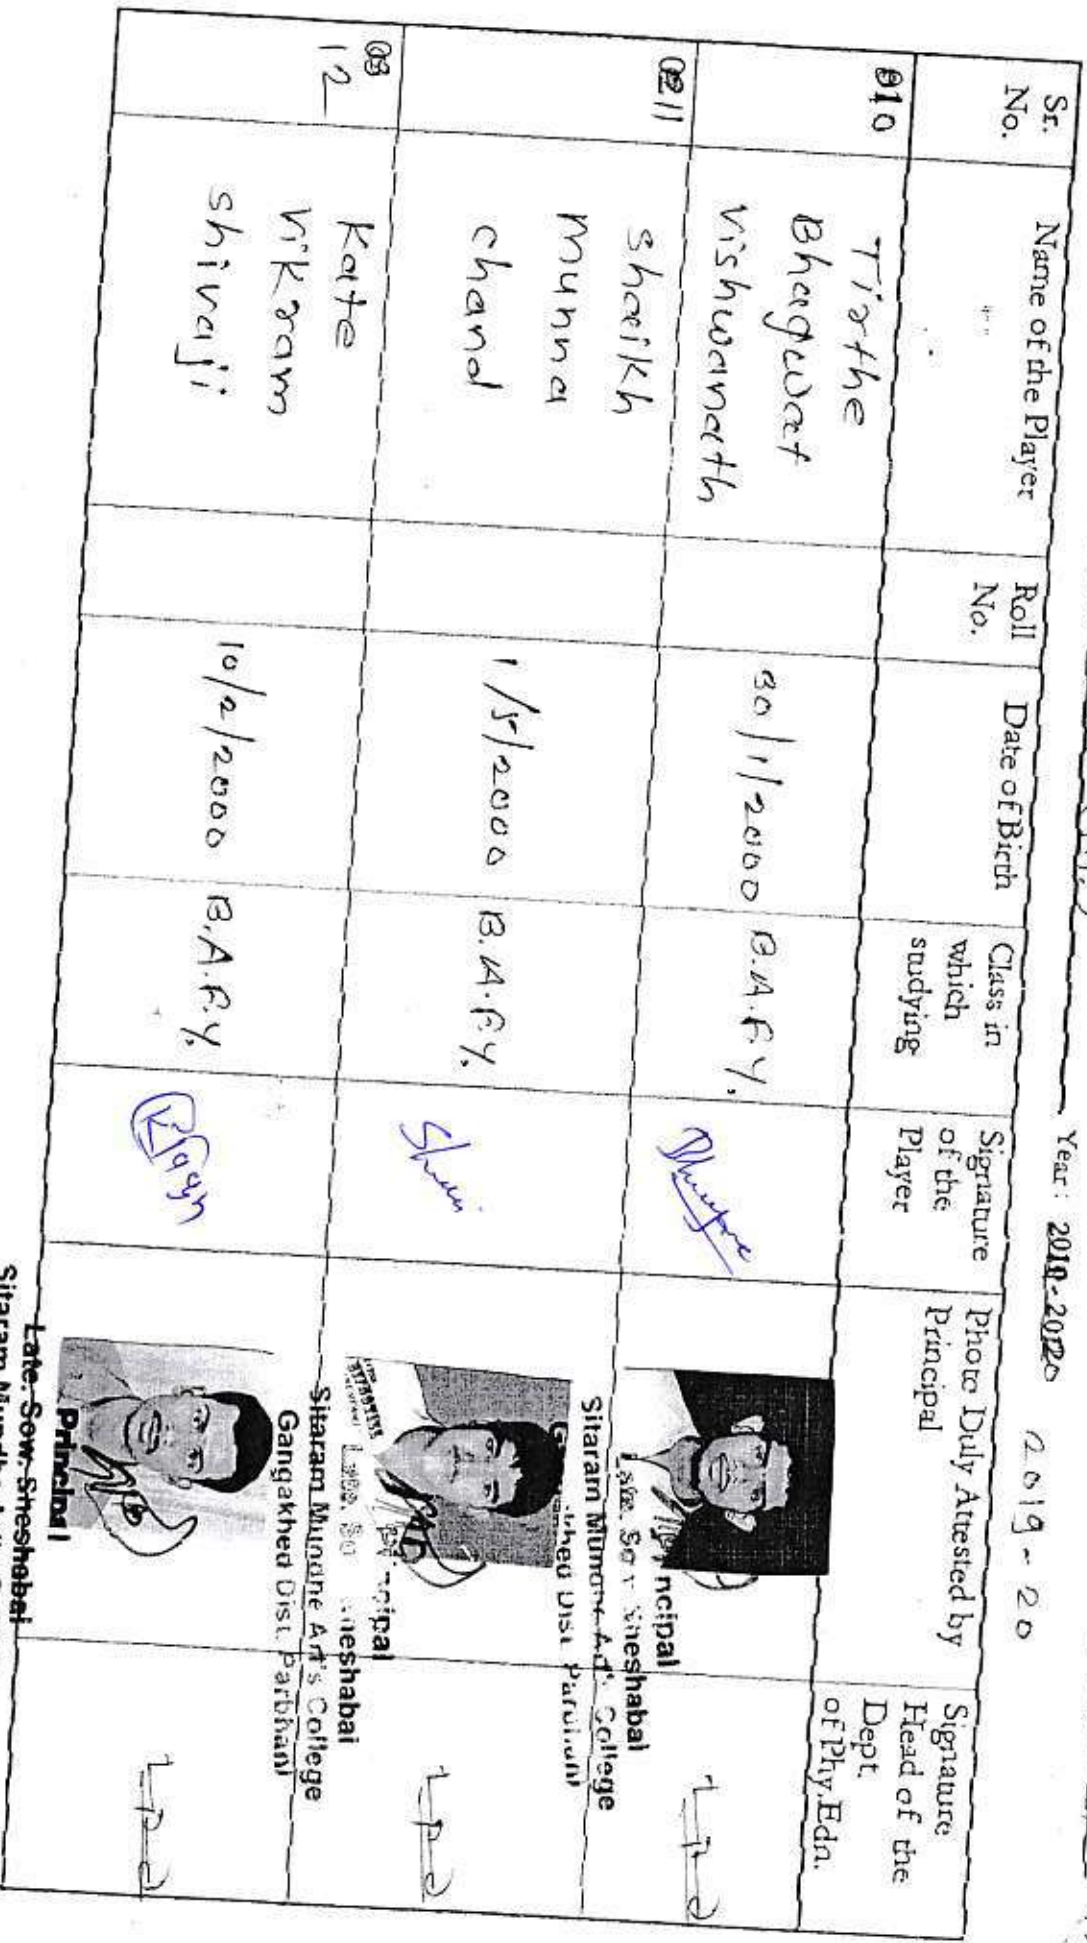 Year: 2019-2020 2019-20
Sr. No.
Name of the Player
Roll No.
Date of Birth
Class in which studying
Signature of the Player
Photo Duly Attested by Principal
Signature Head of the Dept. of Phy.Edn.
10
Tirthe
Bhagwat
Vishwanath
30/1/2000
B.A.F.Y.
ncipal
Sheshabai
Sitaram Mundhe Art's College
Dist. Parbhani
11
Shaikh
Munna
chand
1/5/2000
B.A.F.Y.
ncipal
heshabai
Sitaram Mundhe Art's College
Gangakhed Dist. Parbhani
03
12
Kate
Vikram
shivaji
10/2/2000
B.A.F.Y.
Principal
Late. Sow. Sheshabai